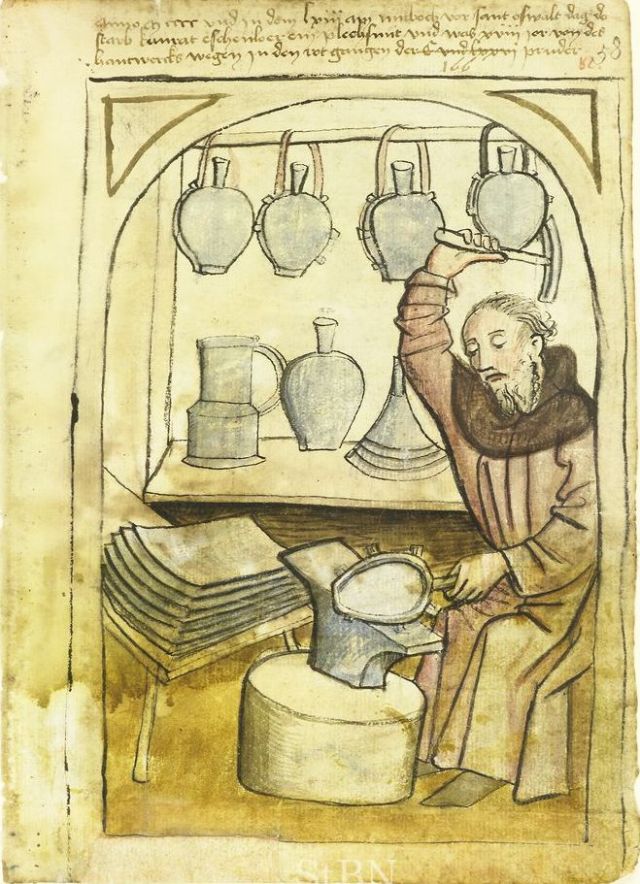 Anno etc cccc und in dem lxiii am mitboch vor sant oswalt dag do
starb kunrat eschenloer ein plechsmit und was xviii jor von des
hantwercks wegen in den rot gangen der C und lxxvi pruder
166
58
82
StBN